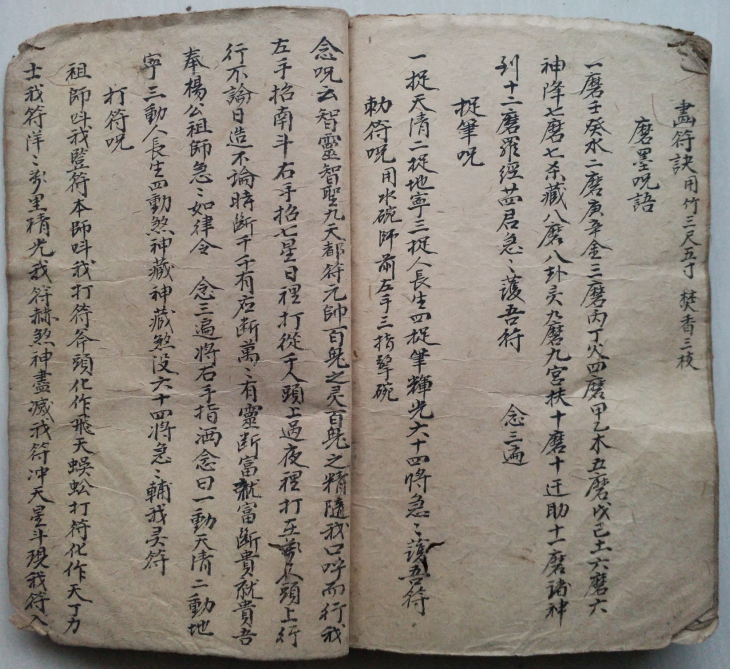 畵符訣 用竹三尺五寸 焚香三枝
磨墨呪語
一磨壬癸水二磨庚辛金三磨丙丁火四磨甲乙木五磨戊己土六磨六
神降七磨七宗藏八磨八卦灵九磨九宮扶十磨十迁助十一磨諸神
到十二磨羅經廿四君急〻護吾符 念三遍
捉筆呪
一捉天清二捉地寧三捉人長生四捉筆輝光六十四將急〻護吾符
勅符呪 用水碗師前左手三指擎碗
念呪云智靈智聖九天都符元帥百鬼之灵百鬼之精隨我口呼而行我
左手招南斗右手招七星日裡打從千人頭上過夜裡打在萬人頭上行
行不論日造不論時断千千有應断萬〻有靈断富就富断貴就貴吾
奉楊公祖師急〻如律令 念三遍將右手指洒念曰一動天清二動地
寧三動人長生四動煞神藏神藏煞没六十四將急〻輔我灵符
打符呪
祖師呌我竪符本師呌我打符斧頭化作飛天蜈蚣打符化作天丁力
士我符洋〻萬里精光我符赫煞神盡滅我符冲天星斗現我符入